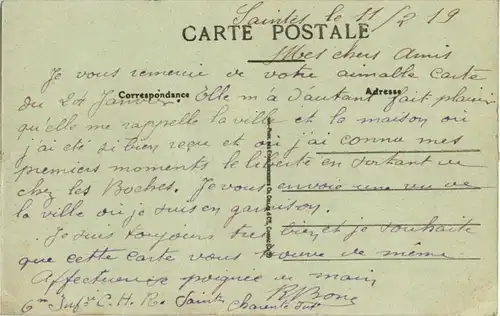 Saintes le 11/2 19
CARTE POSTALE
Mes chers Amis
Je vous remercie de votre aimable carte
Correspondance
Adresse
du 24 Janvier. Elle m'a d'autant fait plaisir
qu'elle me rappelle la ville et la maison où
j'ai été si bien reçu et où j'ai connu mes
premiers moments de liberté en sortant de
chez les Boches. Je vous envoie une vue de
la ville où je suis en garnison.
Je suis toujours très bien et je souhaite
que cette carte vous trouve de même.
Affectueuse poignée de main
6me Inf. C. H. R. Saintes
Charente Inf.